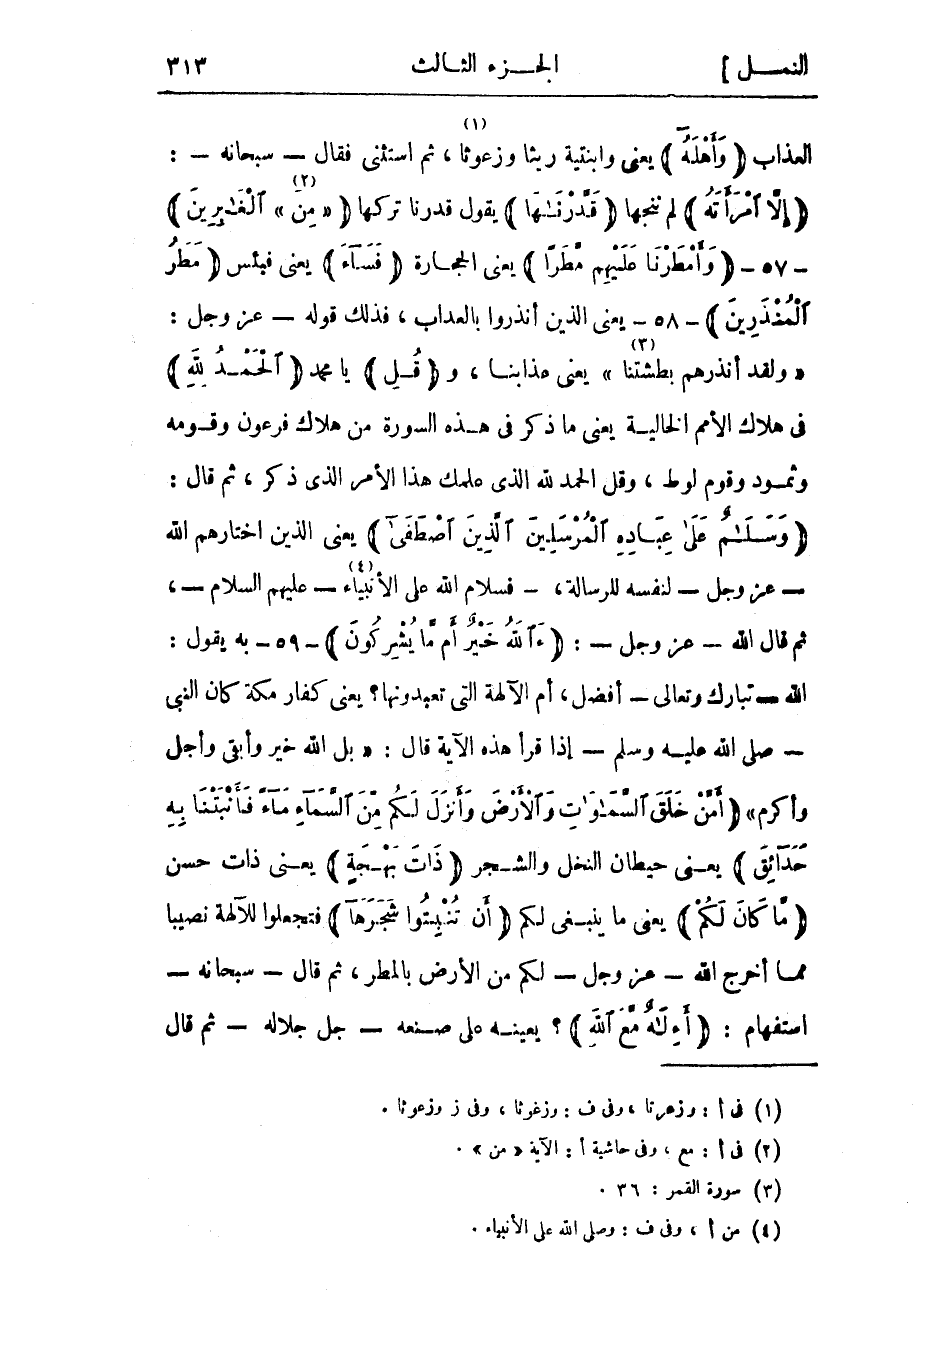 النمل ] الجزء الثالث ٣١٣
العذاب ﴿ وَأَهْلَهُ ﴾ يعنى وابنتية ريثا وزعوثا (١) ، ثم استثنى فقال — سبحانه — :
﴿ إِلَّا ٱمْرَأَتَهُ ﴾ لم ننجها ﴿ قَدَّرْنَـٰهَا ﴾ يقول قدرنا تركها ﴿ « مِنَ » (٢) ٱلْغَـٰبِرِينَ ﴾
- ٥٧ - ﴿ وَأَمْطَرْنَا عَلَيْهِم مَّطَرًا ﴾ يعنى الحجارة ﴿ فَسَآءَ ﴾ يعنى فبئس ﴿ مَطَرُ
ٱلْمُنْذَرِينَ ﴾ - ٥٨ - يعنى الذين أنذروا بالعذاب ، فذلك قوله — عز وجل :
« ولقد أنذرهم بطشتنا » (٣) يعنى عذابنا ، و ﴿ قُلِ ﴾ يا محمد ﴿ ٱلْحَمْدُ لِلَّهِ ﴾
فى هلاك الأمم الخالية يعنى ما ذكر فى هذه السورة من هلاك فرعون وقومه
وثمود وقوم لوط ، وقل الحمد لله الذى علمك هذا الأمر الذى ذكر ، ثم قال :
﴿ وَسَلَـٰمٌ عَلَىٰ عِبَادِهِ ٱلْمُرْسَلِينَ ٱلَّذِينَ ٱصْطَفَىٰٓ ﴾ يعنى الذين اختارهم الله
— عز وجل — لنفسه للرسالة ، - فسلام الله على الأنبياء (٤) — عليهم السلام — ،
ثم قال الله — عز وجل — : ﴿ ءَآللَّهُ خَيْرٌ أَم مَّا يُشْرِكُونَ ﴾ - ٥٩ - به يقول :
الله — تبارك وتعالى — أفضل ، أم الآلهة التى تعبدونها ؟ يعنى كفار مكة كان النبى
— صلى الله عليه وسلم — إذا قرأ هذه الآية قال : « بل الله خير وأبقى وأجل
وأكرم» ﴿ أَمَّنْ خَلَقَ ٱلسَّمَـٰوَٰتِ وَٱلْأَرْضَ وَأَنزَلَ لَكُم مِّنَ ٱلسَّمَآءِ مَآءً فَأَنْبَتْنَا بِهِ
حَدَآئِقَ ﴾ يعنى حيطان النخل والشجر ﴿ ذَاتَ بَهْجَةٍ ﴾ يعنى ذات حسن
﴿ مَّا كَانَ لَكُمْ ﴾ يعنى ما ينبغى لكم ﴿ أَن تُنْبِتُوا شَجَرَهَآ ﴾ فتجعلوا للآلهة نصيبا
مما أخرج الله — عز وجل — لكم من الأرض بالمطر ، ثم قال — سبحانه —
استفهام : ﴿ أَءِلَـٰهٌ مَّعَ ٱللَّهِ ﴾ ؟ يعينه على صنعه — جل جلاله — ثم قال
(١) فى أ : وزهرتا ، وفى ف : وزغوثا ، وفى ز وزعوثا .
(٢) فى أ : مع ، وفى حاشية أ : الآية « من » .
(٣) سورة القمر : ٣٦ .
(٤) من أ ، وفى ف : وصلى الله على الأنبياء .